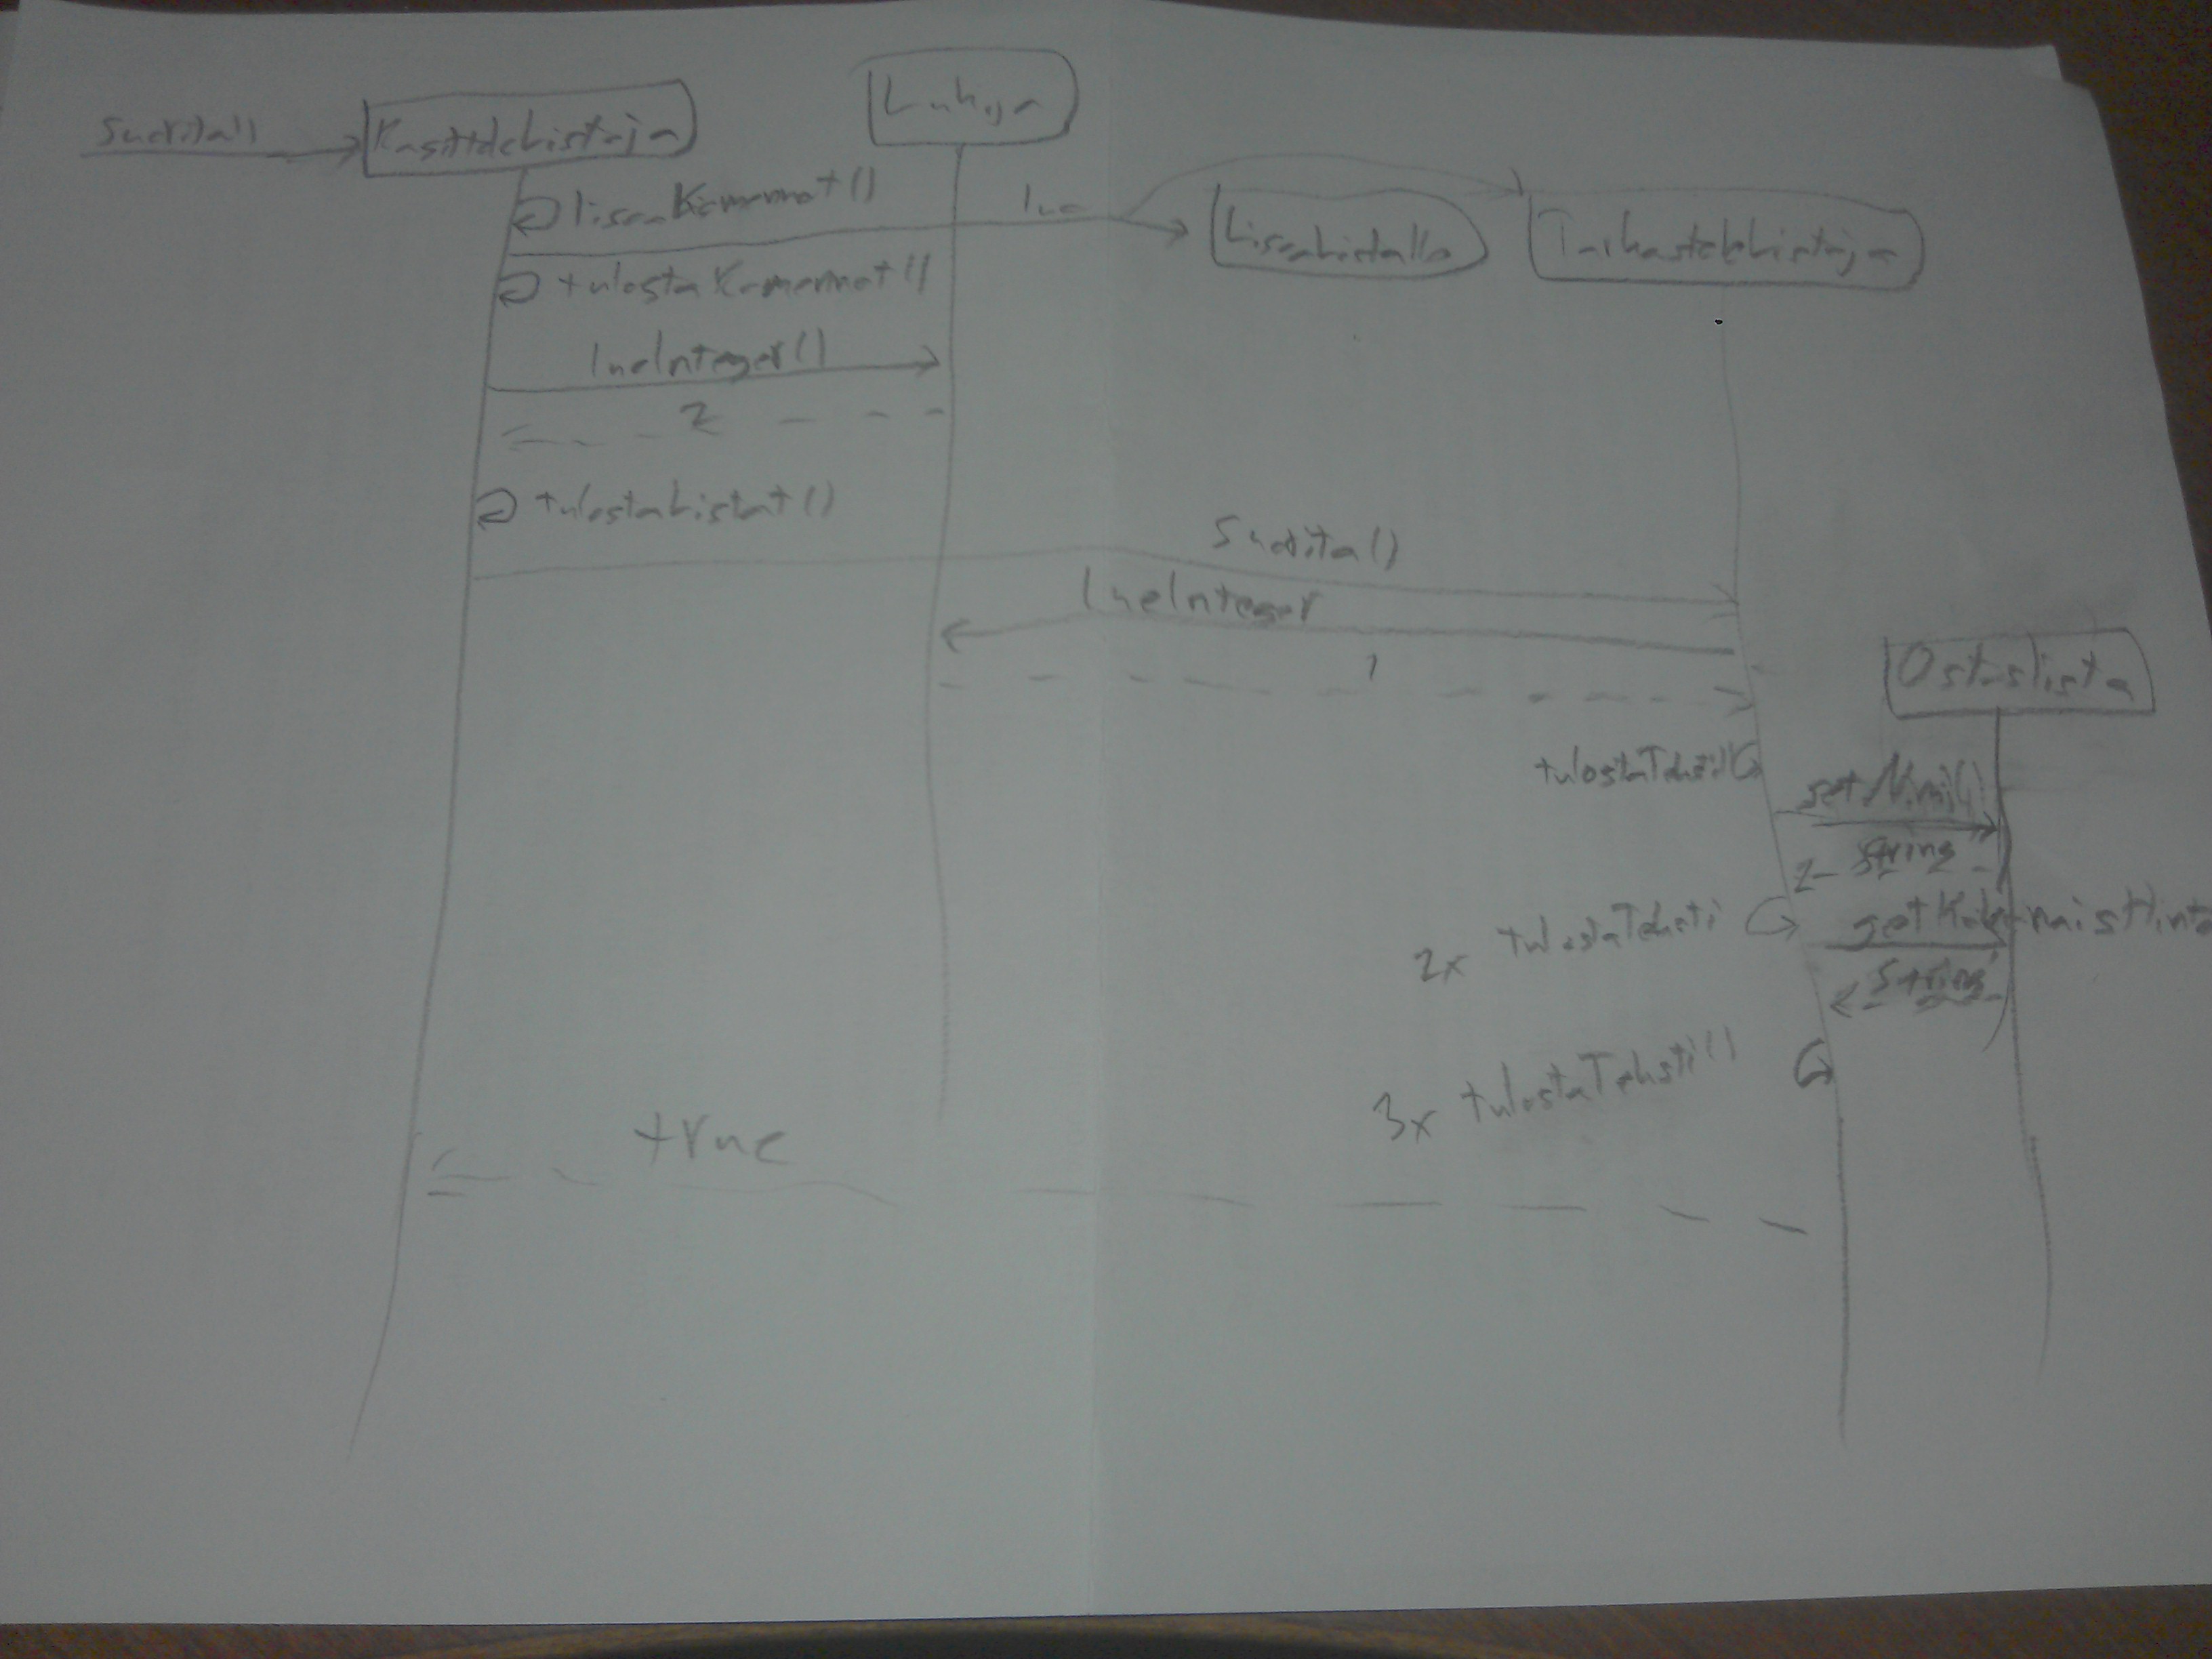 Suorita()
KasitteleListaja
Lukija
lisaaKomennot()
luo
LisaaListalle
TarkasteleListaja
tulostaKomennot()
lueInteger()
2
tulostaListat()
Suorita()
lueInteger
1
Ostoslista
tulostaTeksti()
getNimi()
String
2x tulostaTeksti
getKokonaisHinta
String
3x tulostaTeksti()
true